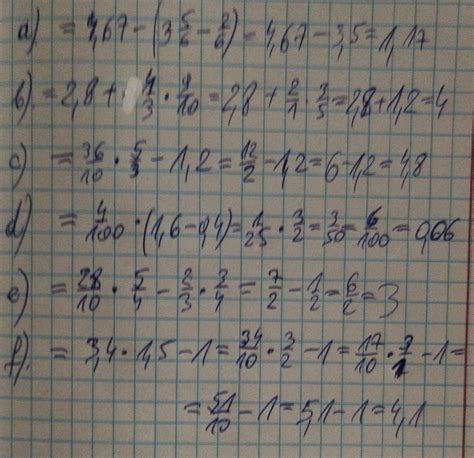 a) = 4,67 - (3 5/6 - 2/6) = 4,67 - 3,5 = 1,17
b). = 2,8 + 4/3 · 9/10 = 2,8 + 2/1 · 3/5 = 2,8 + 1,2 = 4
c) = 36/10 · 5/3 - 1,2 = 12/2 - 1,2 = 6 - 1,2 = 4,8
d) = 4/100 · (1,6 - 0,4) = 1/25 · 3/2 = 3/50 = 6/100 = 0,06
e) = 28/10 · 5/4 - 2/3 · 3/4 = 7/2 - 1/2 = 6/2 = 3
f). = 3,4 · 1,5 - 1 = 34/10 · 3/2 - 1 = 17/10 · 3/1 - 1 =
= 51/10 - 1 = 5,1 - 1 = 4,1